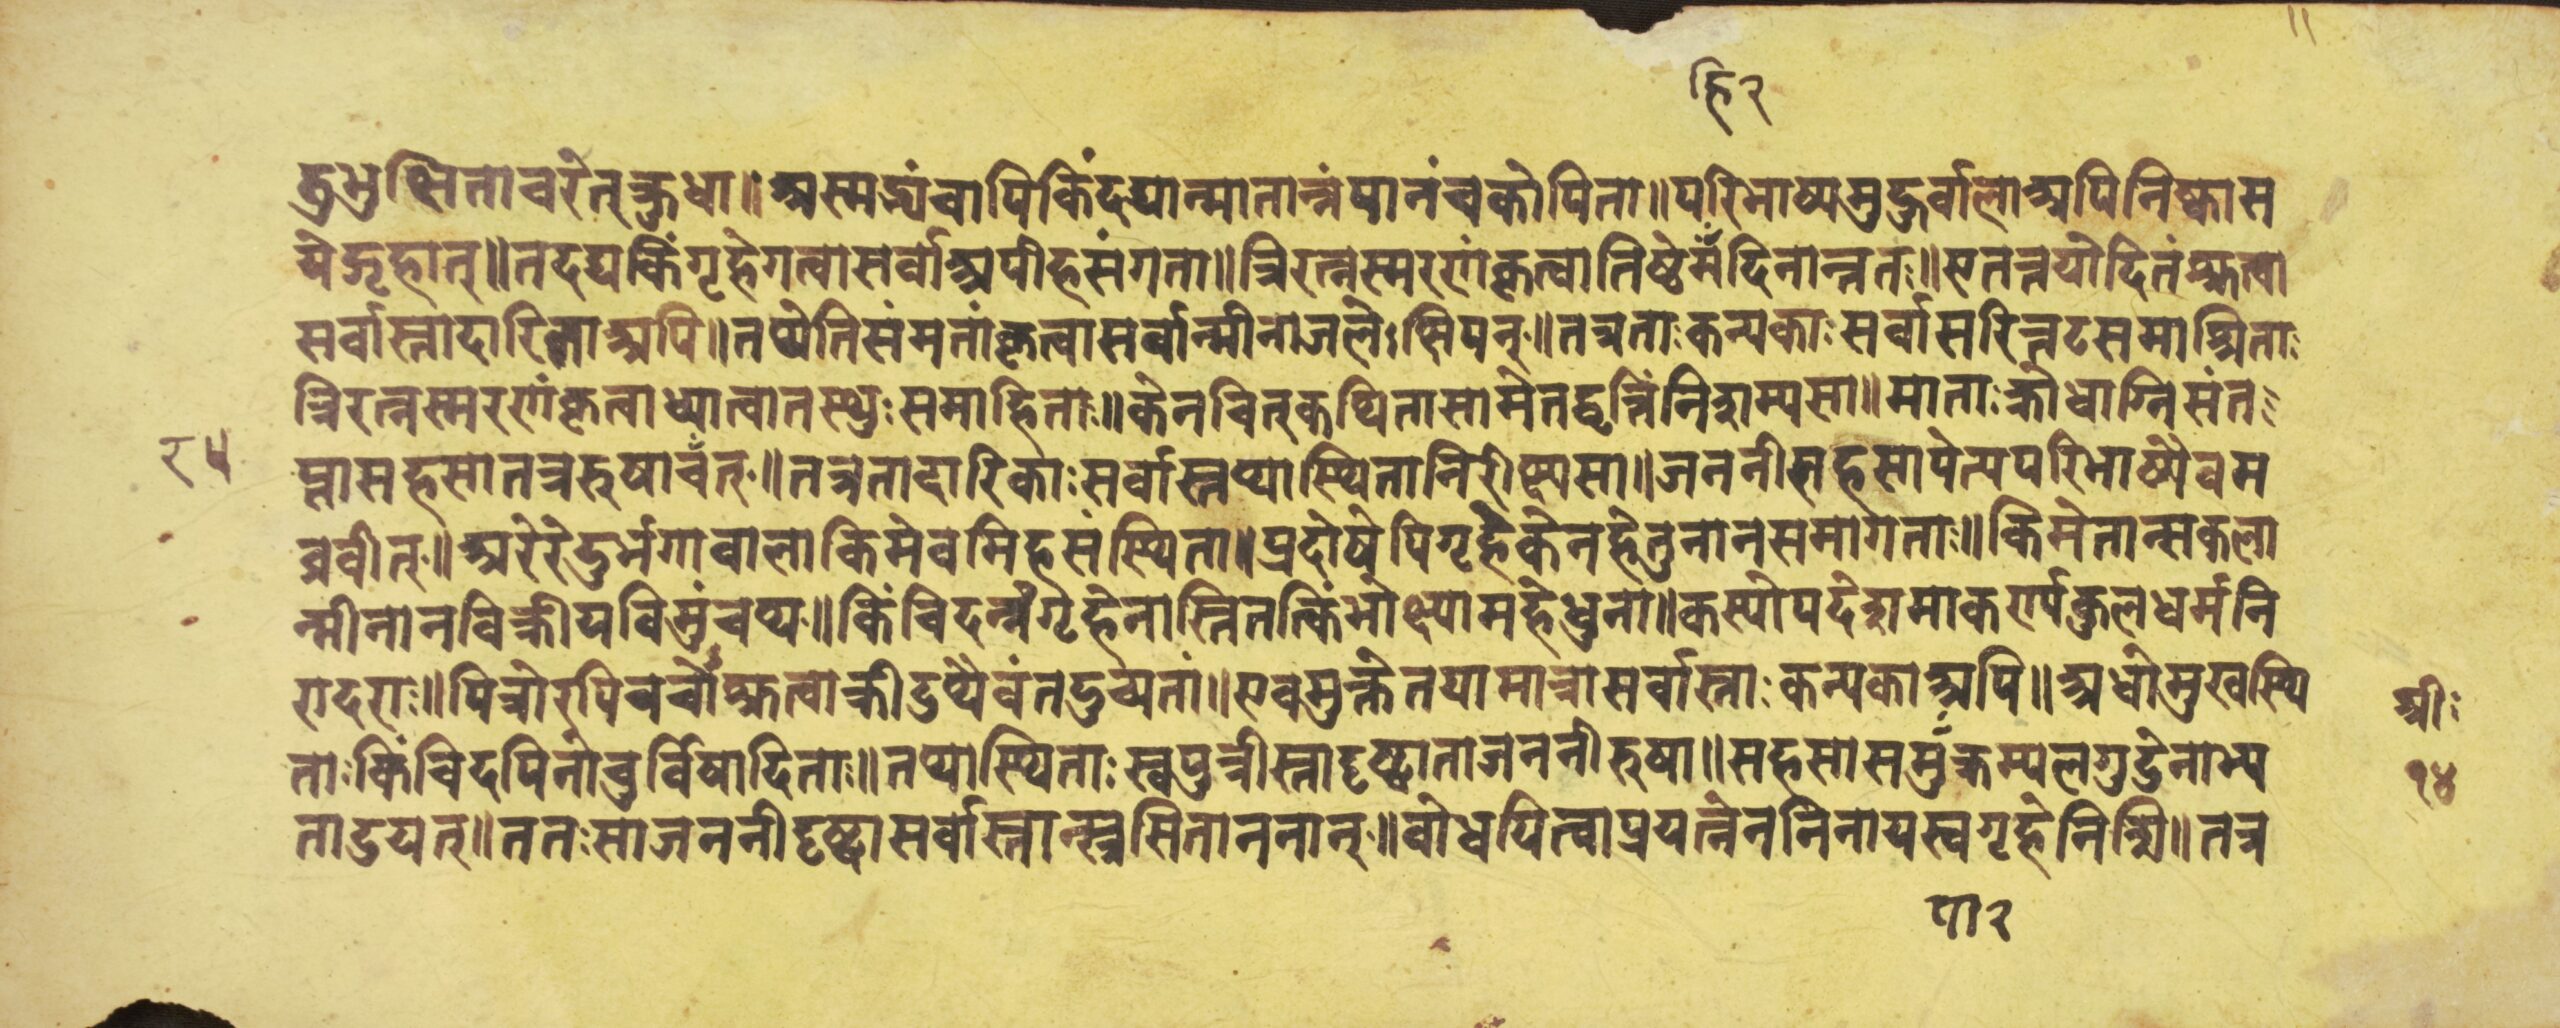 हि २
द्रुभुक्षिता चरेत् क्रुधा॥ अस्मभ्यं वापि किं दद्यान्मातान्नं पानं च कोपिता॥ परिभाष्य मुहुर्वाला अपि निष्कास
ये गृहात्॥ तदद्य किं गृहे गत्वा सर्वा अपीह संगता॥ त्रिरत्नस्मरणं कृत्वा तिष्ठेम दिनान्नतः॥ एतत्तयोदितं श्रुत्वा
सर्वास्ता दारिका अपि॥ तथेति संमतां कृत्वा सर्वान्मीनां जले ऽक्षिपन्॥ तत्र ताः कन्यकाः सर्वा सरित्तटसमाश्रिताः
त्रिरत्नस्मरणं कृत्वा ध्यात्वा तस्थुः समाहिताः॥ केनचित् कथिता सामेतद्वृत्तिं निशम्य सा॥ माताः क्रोधाग्निसंत
प्ता सहसा तत्र रुषा चरत्॥ तत्र ता दारिकाः सर्वास्तथा स्थिता निरीक्ष्य सा॥ जननी सहसापेत्य परिभाष्यैवम
ब्रवीत्॥ अरे रे दुर्भगा वाला किमेवमिह संस्थिता॥ प्रदोषे पि गृहे केन हेतुना न समागताः॥ किमेतान् सकला
न्मीनान विक्रीय विमुंचथ॥ किंचिदन्नं गृहे नास्ति तत्किं भोक्ष्यामहे धुना॥ कस्योपदेशमाकर्ण्य कुलधर्मनि
रादराः॥ पित्रोरपि वचो श्रुत्वा क्रीडथैवं तदुच्यतां॥ एवमुक्ते तया मात्रा सर्वास्ताः कन्यका अपि॥ अधोमुखस्थि
ताः किंचिदपि नोचुर्विषादिताः॥ तथा स्थिताः स्वपुत्रीस्ता दृष्ट्वा ता जननी रुषा॥ सहसा समुक्रम्य लगुडेनाभ्य
ताडयत्॥ ततः सा जननी दृष्ट्वा सर्वास्तान्स्त्रसिताननान्॥ वोधयित्वा प्रयत्नेन निनाय स्वगृहे निशि॥ तत्र
श्रीः
१४
पा २